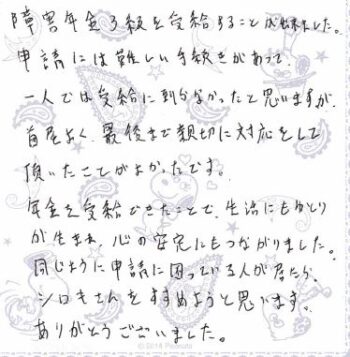 障害年金3級を受給することが出来ました。
申請には難しい手続きがあって、
一人では受給に到らなかったと思いますが、
首尾よく、最後まで親切に対応をして
頂いたことがよかったです。
年金を受給できたことで、生活にもゆとり
が生まれ、心の安定にもつながりました。
同じように申請に困っている人が居たら、
シロキさんをすすめようと思います。
ありがとうございました。
© 2014 Peanuts